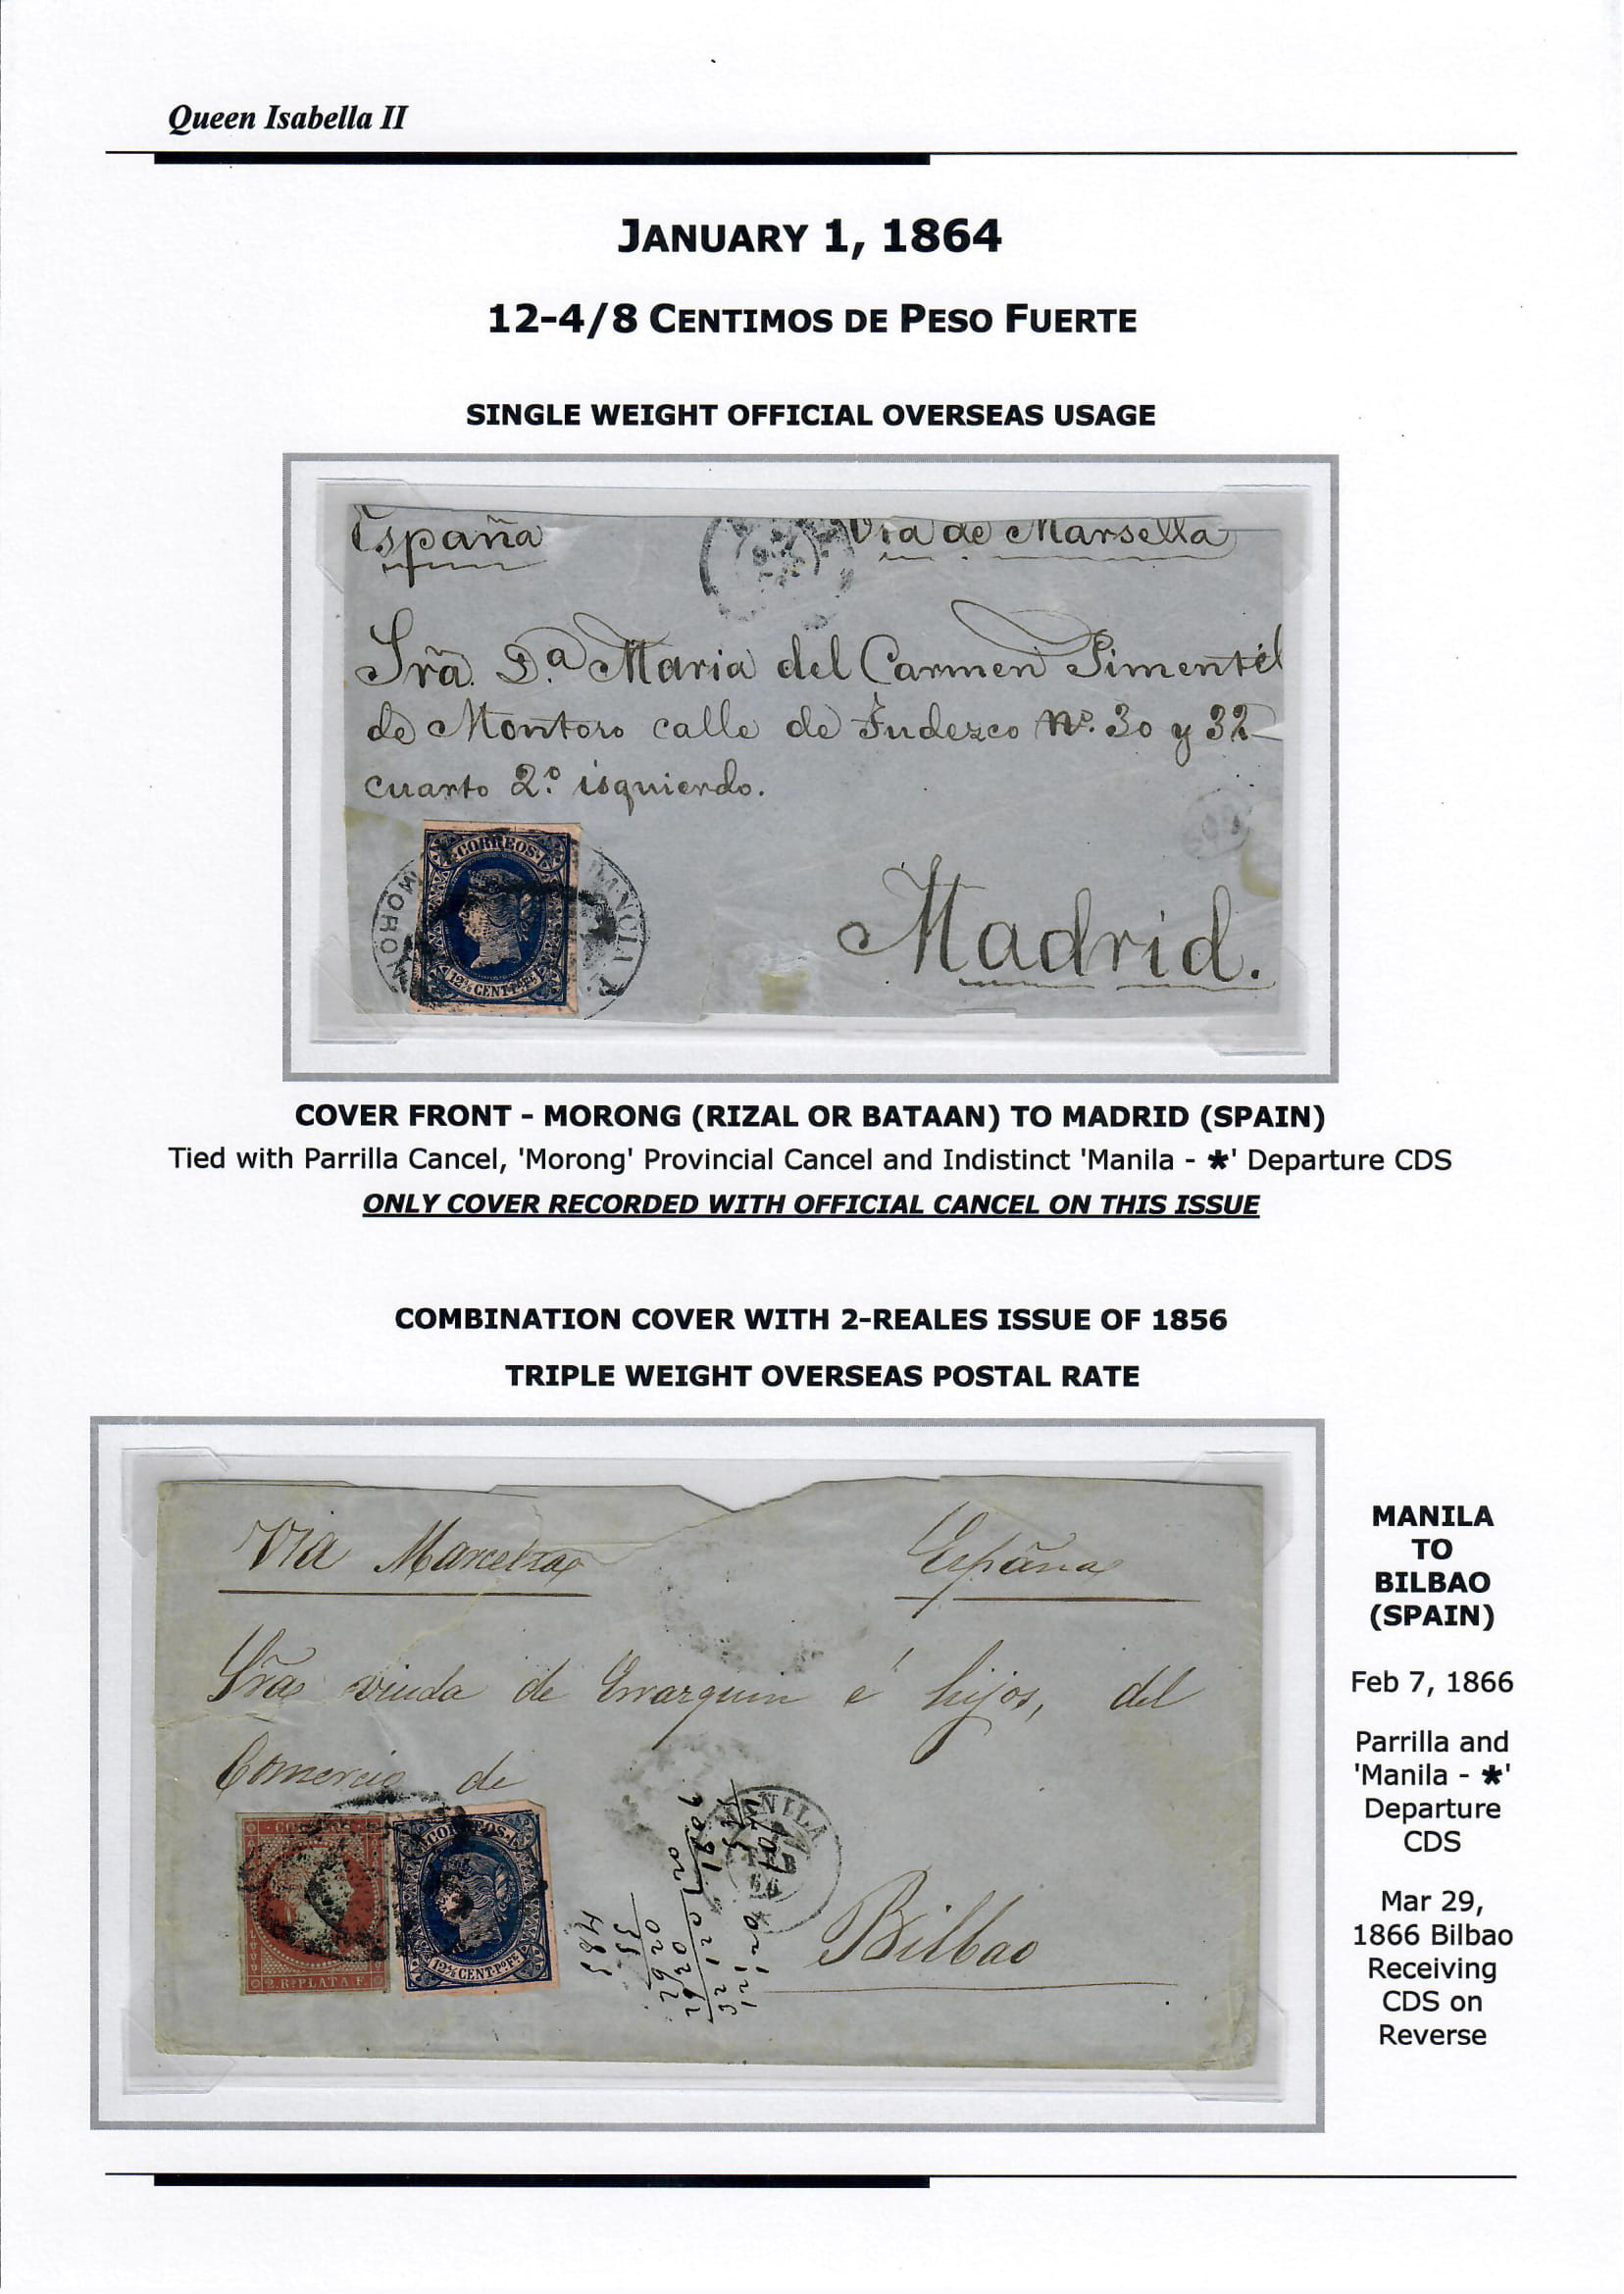 Queen Isabella II
JANUARY 1, 1864
12-4/8 CENTIMOS DE PESO FUERTE
SINGLE WEIGHT OFFICIAL OVERSEAS USAGE
España
Via de Marsella
Sra. Dª Maria del Carmen Pimentel
de Montoro calle de Judezco Nº. 30 y 32
cuarto 2º. isquierdo.
CORREOS
12 4/8 CENT. Pº Fe
MORON
Madrid.
COVER FRONT - MORONG (RIZAL OR BATAAN) TO MADRID (SPAIN)
Tied with Parrilla Cancel, 'Morong' Provincial Cancel and Indistinct 'Manila - *' Departure CDS
ONLY COVER RECORDED WITH OFFICIAL CANCEL ON THIS ISSUE
COMBINATION COVER WITH 2-REALES ISSUE OF 1856
TRIPLE WEIGHT OVERSEAS POSTAL RATE
Via
España
Sra viuda de é hijos, del
Comercio de
2. Rs PLATA F.
CORREOS
12 4/8 CENT. Pº Fe
MANILA
7
FEB
66
Bilbao
MANILA
TO
BILBAO
(SPAIN)
Feb 7, 1866
Parrilla and
'Manila - *'
Departure
CDS
Mar 29,
1866 Bilbao
Receiving
CDS on
Reverse